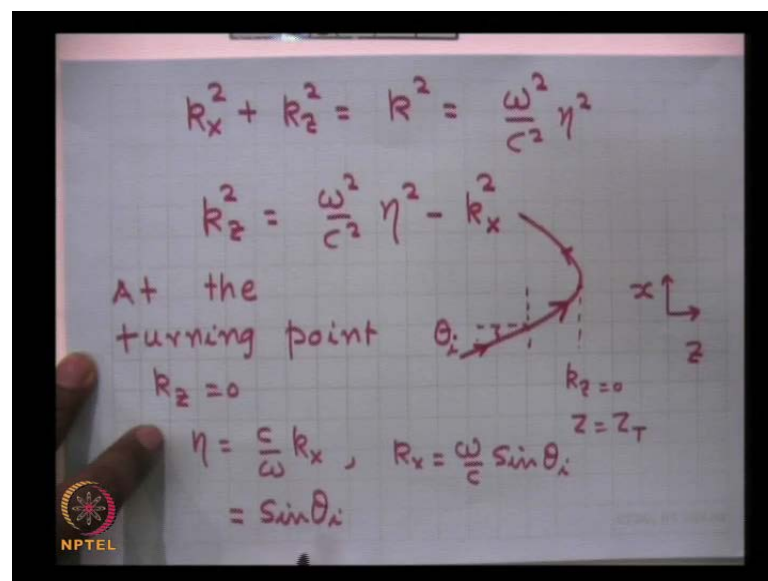 kx² + kz² = k² = ω²/c² η²
kz² = ω²/c² η² - kx²
At the
turning point
kz = 0
θi
x
z
kz = 0
z = zT
η = c/ω kx , kx = ω/c sin θi
= sin θi
NPTEL